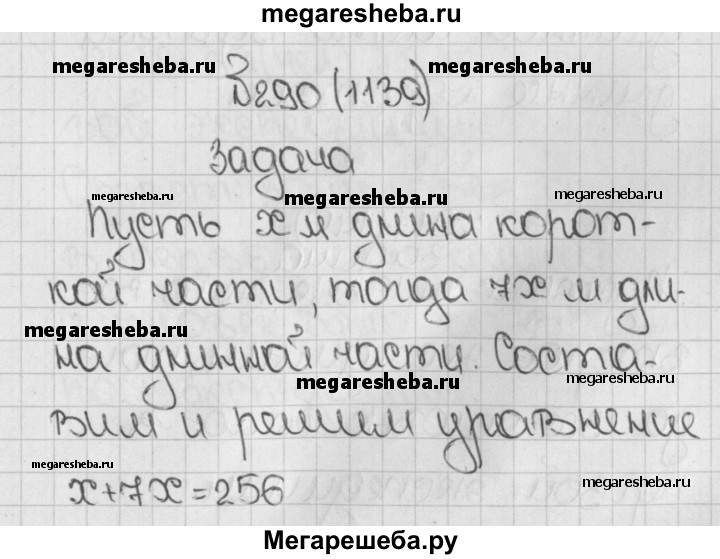 megaresheba.ru
megaresheba.ru megaresheba.ru
290 (1139)
Задача
megaresheba.ru megaresheba.ru megaresheba.ru
Пусть x м длина корот-
кой части, тогда 7x м дли-
megaresheba.ru
на длинной части. Соста-
megaresheba.ru megaresheba.ru
вим и решим уравнение
megaresheba.ru megaresheba.ru
x+7x=256
Мегарешеба.ру